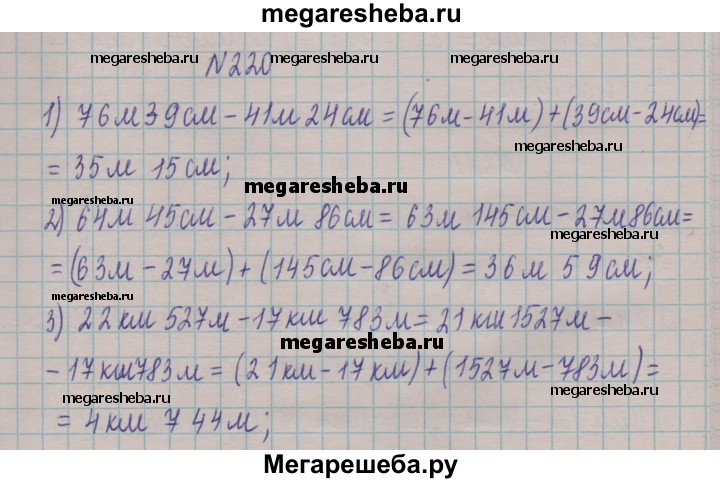 megaresheba.ru
megaresheba.ru megaresheba.ru
№220
1) 76м 39см - 41м 24см = (76м - 41м) + (39см - 24см) =
megaresheba.ru
= 35м 15см;
megaresheba.ru
megaresheba.ru
2) 64м 45см - 27м 86см = 63м 145см - 27м 86см =
megaresheba.ru
= (63м - 27м) + (145см - 86см) = 36м 59см;
megaresheba.ru
3) 22км 527м - 17км 783м = 21км 1527м -
megaresheba.ru
- 17км 783м = (21км - 17км) + (1527м - 783м) =
megaresheba.ru
= 4км 744м;
megaresheba.ru
Мегарешеба.ру